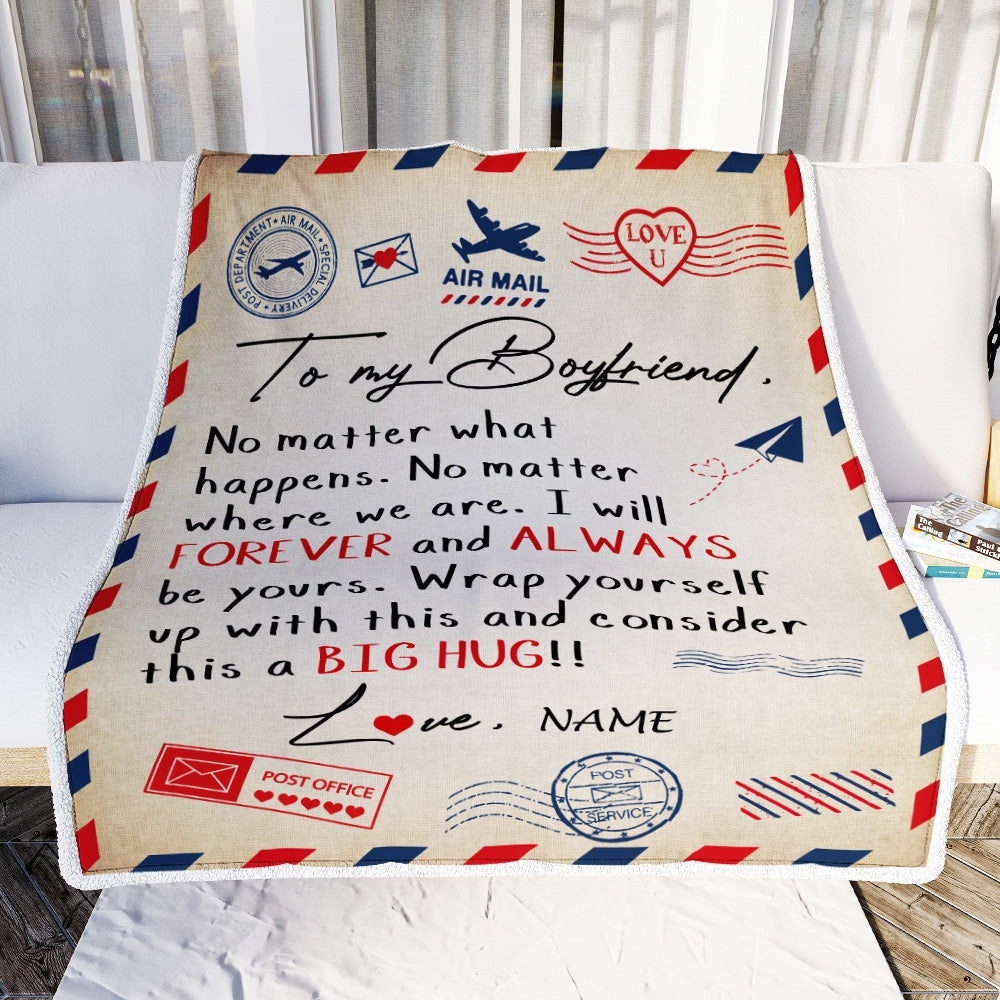 POST DEPARTMENT ★ AIR MAIL ★ SPECIAL DELIVERY ★
AIR MAIL
LOVE
U
To my Boyfriend,
No matter what
happens. No matter
where we are. I will
FOREVER and ALWAYS
be yours. Wrap yourself
up with this and consider
this a BIG HUG!!
Love, NAME
POST OFFICE
POST
SERVICE
The
Calling
Paul